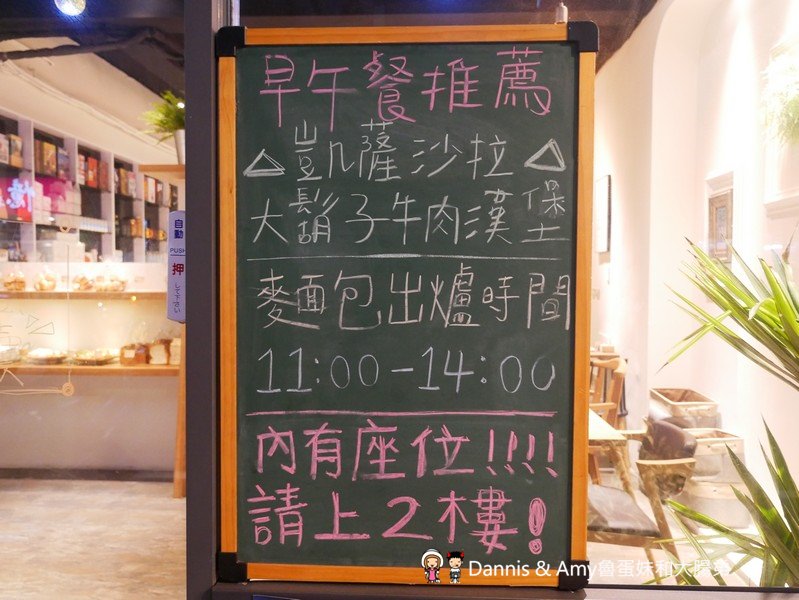 早午餐推薦
△凱薩沙拉△
大鬍子牛肉漢堡
麵包出爐時間
11:00-14:00
內有座位!!!!
請上2樓!
自動
PUSH
押
して下さい
新
Dannis & Amy魯蛋妹和大腸弟